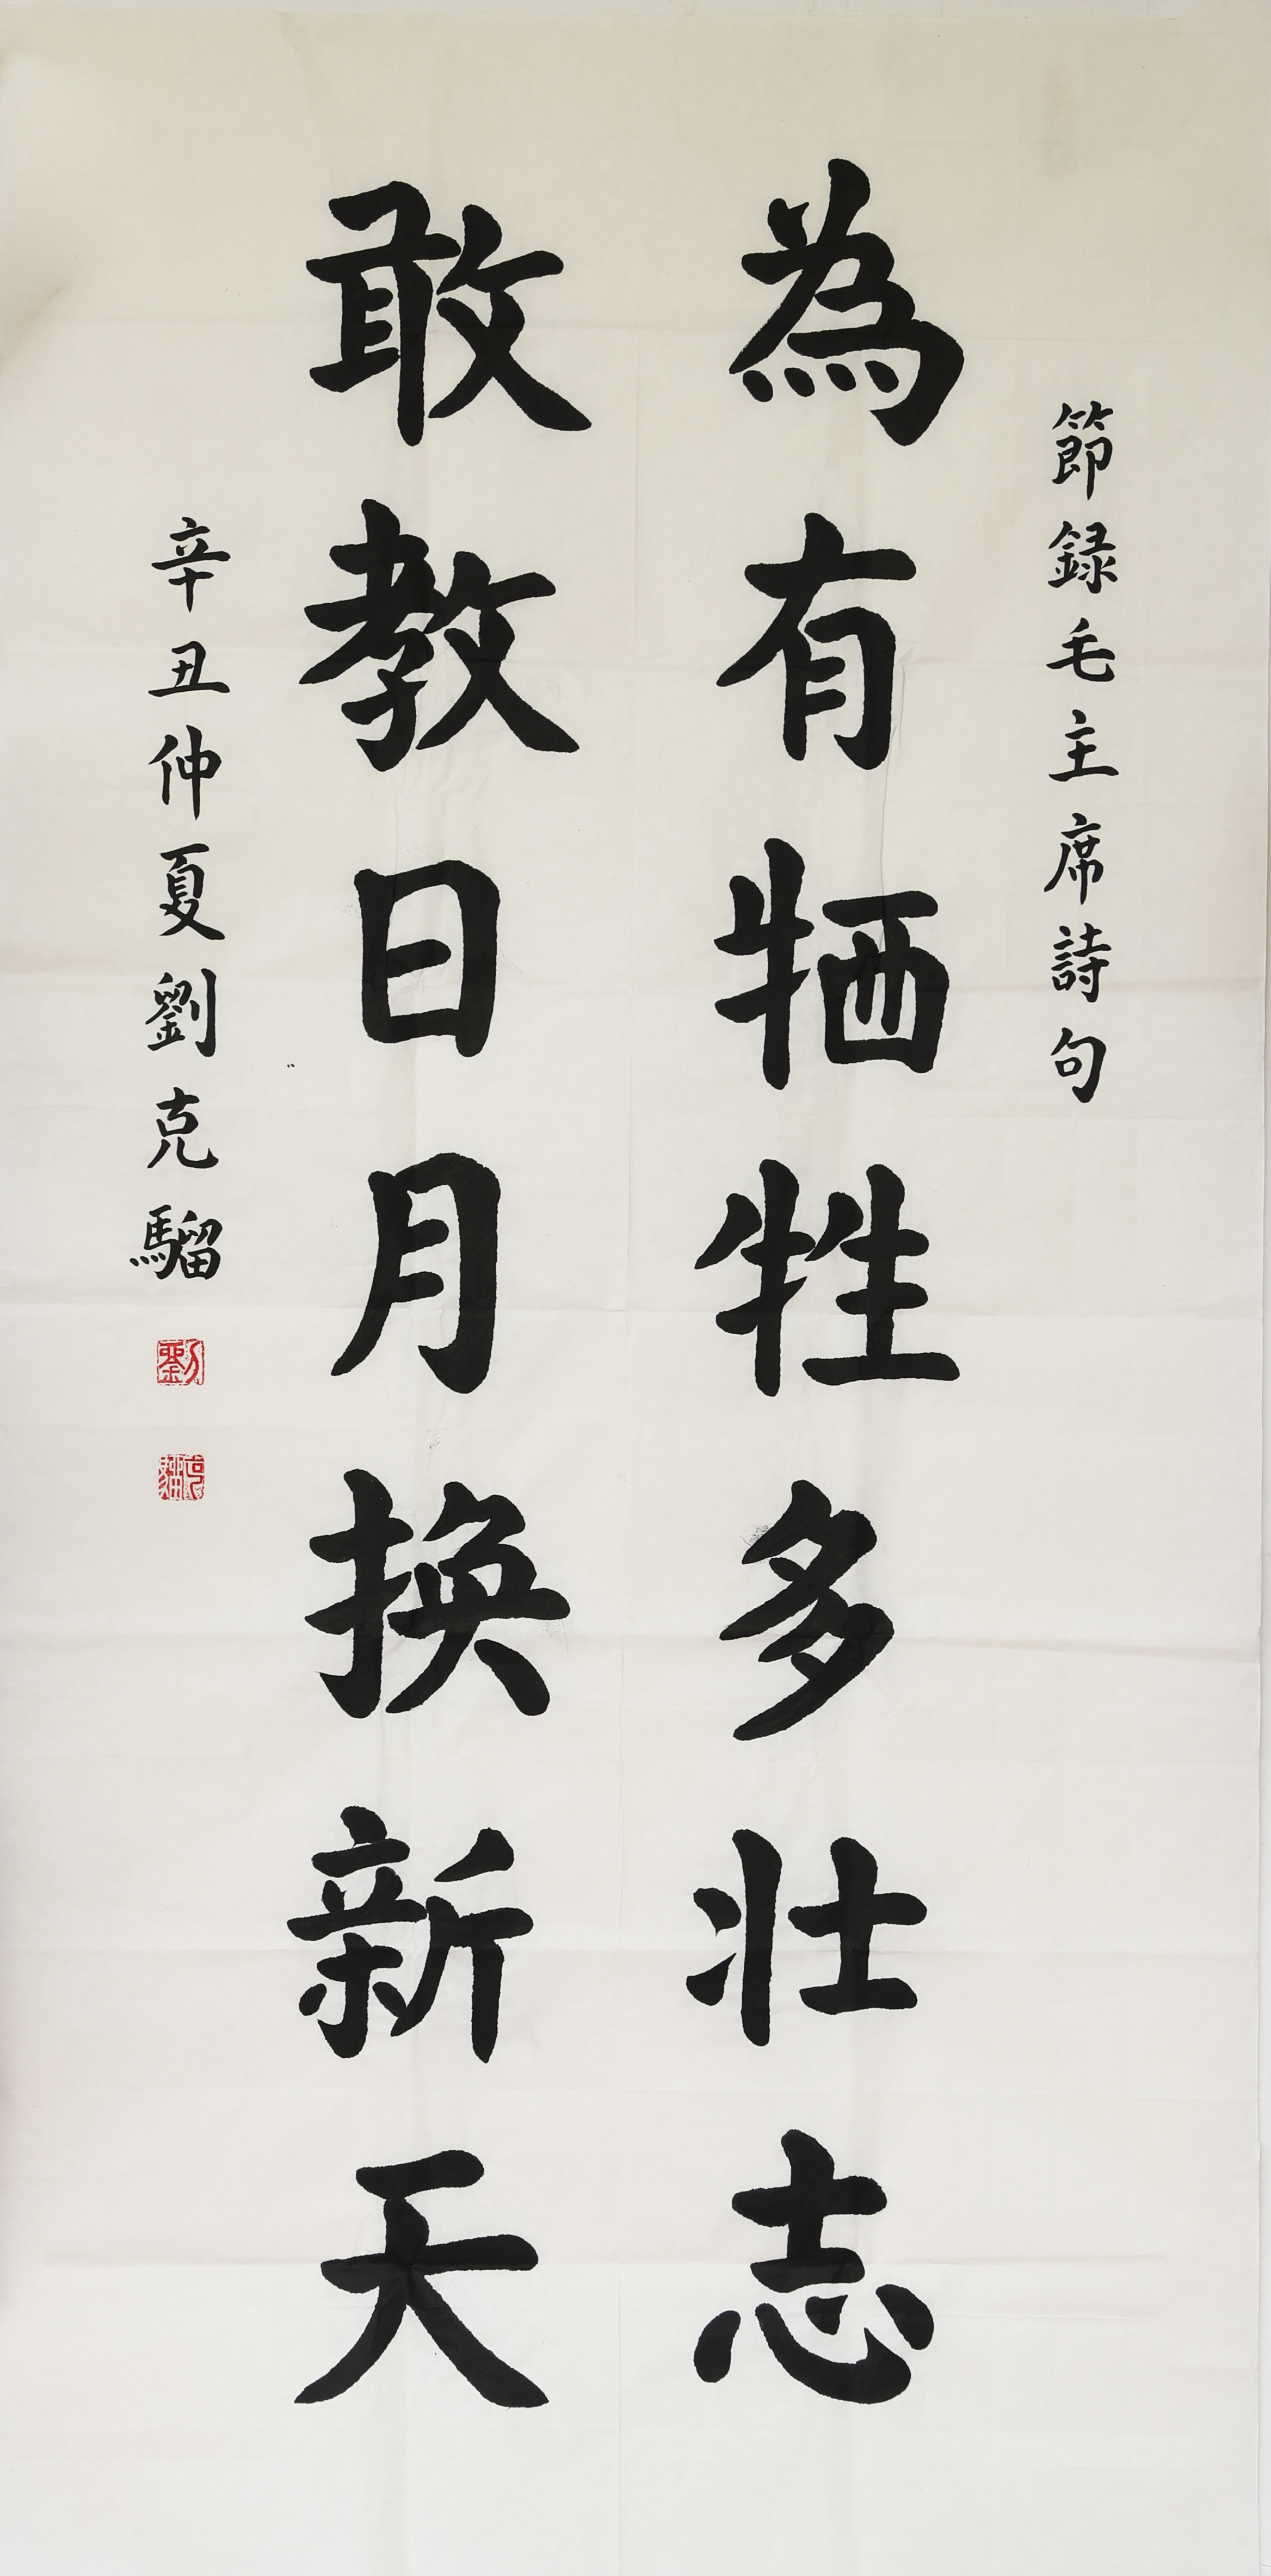 節録毛主席詩句
為有牺牲多壮志
敢教日月换新天
辛丑仲夏劉克騮
劉
克騮